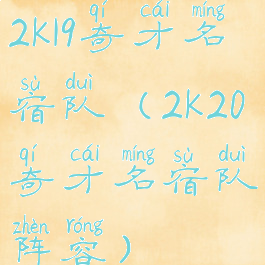 qí cái míng
2K19奇才名
sù duì
宿队（2K20
qí cái míng sù duì
奇才名宿队
zhèn róng
阵容）